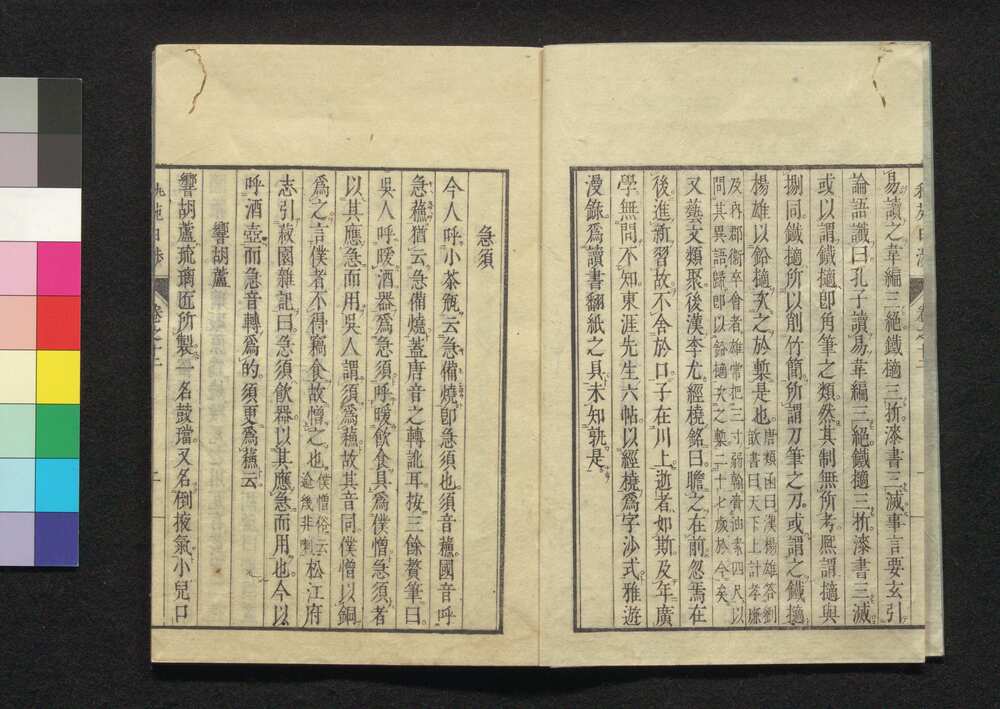 易讀之韋編三絕鐵擿三折漆書三滅事言要玄引
論語讖曰孔子讀易韋編三絕鐵擿三折漆書三滅
或以謂鐵擿卽角筆之類然其制無所考熙謂擿與
捌同鐵擿所以削竹簡所謂刀筆之刀或謂之鐵擿
楊雄以鉛擿次之於槧是也唐類函曰漢楊雄答劉
歆書曰天下上計孝廉
及內郡衞卒會者雄常把三寸弱翰賫油素四尺以
問其異語歸卽以鉛擿次之槧二十七歲於今矣
又藝文類聚後漢李尤經橈銘曰瞻之在前忽焉在
後進新習故不舍於口子在川上逝者如斯及年廣
學無問不知東涯先生六帖以經橈爲字沙式雅遊
漫錄爲讀書翻紙之具未知孰是
急須
今人呼小茶瓶云急備燒卽急須也須音蘓國音呼
急蘓猶云急備燒蓋唐音之轉訛耳按三餘贅筆曰
吳人呼暖酒器爲急須呼暖飲食具爲僕憎急須者
以其應急而用吳人謂須爲蘓故其音同僕憎以銅
爲之言僕者不得竊食故憎之也僕憎俗云
松江府
志引菽園雜記曰急須飲器以其應急而用也今以
呼酒壺而急音轉爲的須更爲蘓云
響胡蘆
響胡蘆琉璃匠所製一名鼓璫又名倒掖氣小兒口
卷之十二
二